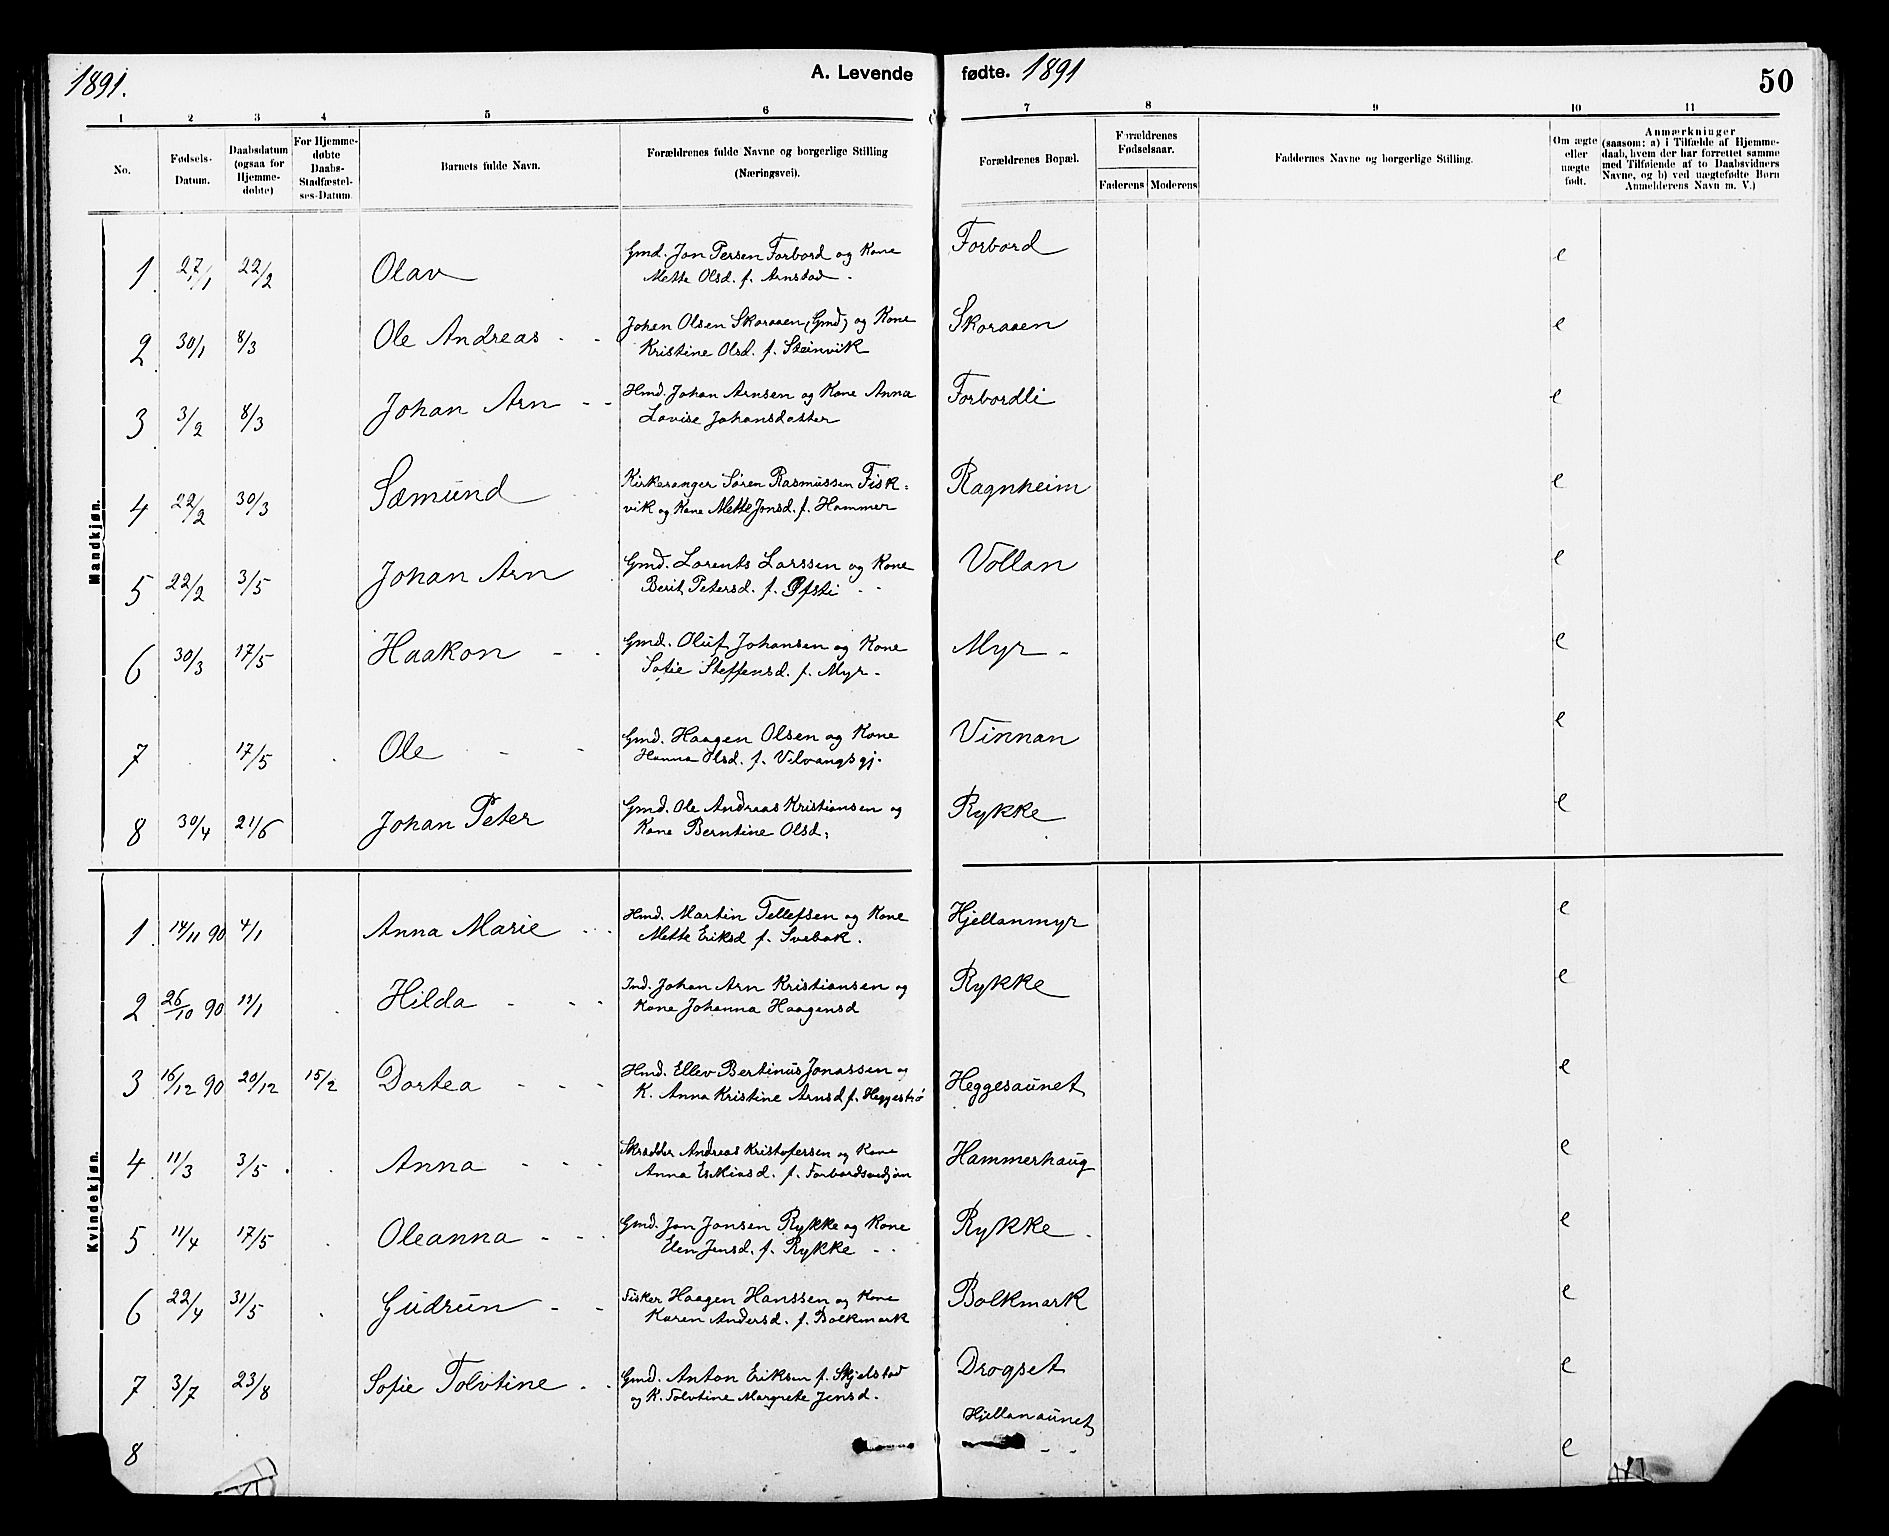 1891.
A. Levende fødte. 1891
50
1 2 3 4 5 6 7 8 9 10 11
No.
Fødsels-
Datum.
Daabsdatum
(ogsaa for
Hjemme-
døbte)
For Hjemme-
døbte
Daabs-
Stadfæstel-
ses-Datum.
Barnets fulde Navn.
Forældrenes fulde Navne og borgerlige Stilling
(Næringsvei).
Forældrenes Bopæl.
Forældrenes
Fødselsaar.
Faderens Moderens
Faddernes Navne og borgerlige Stilling.
Om ægte
eller
uægte
født.
Anmærkninger
(saasom: a) i Tilfælde af Hjemme-
daab, hvem der har forrettet samme
med Tilføiende af to Daabsvidners
Navne, og b) ved uægtefødte Børn
Anmelderens Navn m. V.)
Mandkjøn.
1 27/1 22/2 Olav Gmd. Jon Persen Forbord og Kone Forbord e
Mette Olsd. f. Arnstad.
2 30/1 8/3 Ole Andreas Johan Olsen Skoraaen, (Gmd) og Kone Skoraaen e
Kristine Olsd. f. Steinvik
3 3/2 8/3 Johan Arn Hmd. Johan Arnsen og Kone Anna Forbordli e
Lovise Johansdatter
4 22/2 30/3 Sæmund Kirkesanger Sören Rasmussen Fisk= Ragnheim e
vik og Kone Mette Jonsd. f. Hammer
5 22/2 3/5 Johan Arn Gmd. Lorents Larssen og Kone Vollan e
Berit Petersd. f. Öfsti
6 30/3 17/5 Haakon Gmd. Oluf Johansen og Kone Myr e
Sofie Steffensd. f. Myr
7 17/5 Ole Gmd. Haagen Olsen og Kone Vinnan e
Hanna Olsd. f. Vilvangsgj.
8 30/4 21/6 Johan Peter Gmd. Ole Andreas Kristiansen og Rykke e
Kone Berntine Olsd.
Kvindekjøn.
1 14/11 90 4/1 Anna Marie Hmd. Martin Tellefsen og Kone Hjellanmyr e
Mette Eriksd f. Svebak.
2 26/10 90 11/1 Hilda Ind. Johan Arn Kristiansen og Rykke e
Kone Johanna Haagensd
3 16/12 90 20/12 15/2 Dortea Hmd. Ellev Bertinus Jonassen og Heggesaunet e
K. Anna Kristine Arnsd f. Heggeströ
4 11/3 3/5 Anna Skrædder Andreas Kristofersen og Kone Hammerhaug e
Anna Eskiasd. f.
5 11/4 17/5 Oleanna Gmd. Jon Jonsen Rykke og Kone Rykke e
Elen Jensd. f. Rykke
6 22/4 31/5 Gudrun Fisker Haagen Hanssen og Kone Bolkmark e
Karen Andersd. f. Bolkmark
7 3/7 23/8 Sofie Tolvtine Gmd. Anton Eriksen f. Skjelstad Drogset e
og K. Tolvtine Margrete Jensd.
Hjellanaunet
8 e